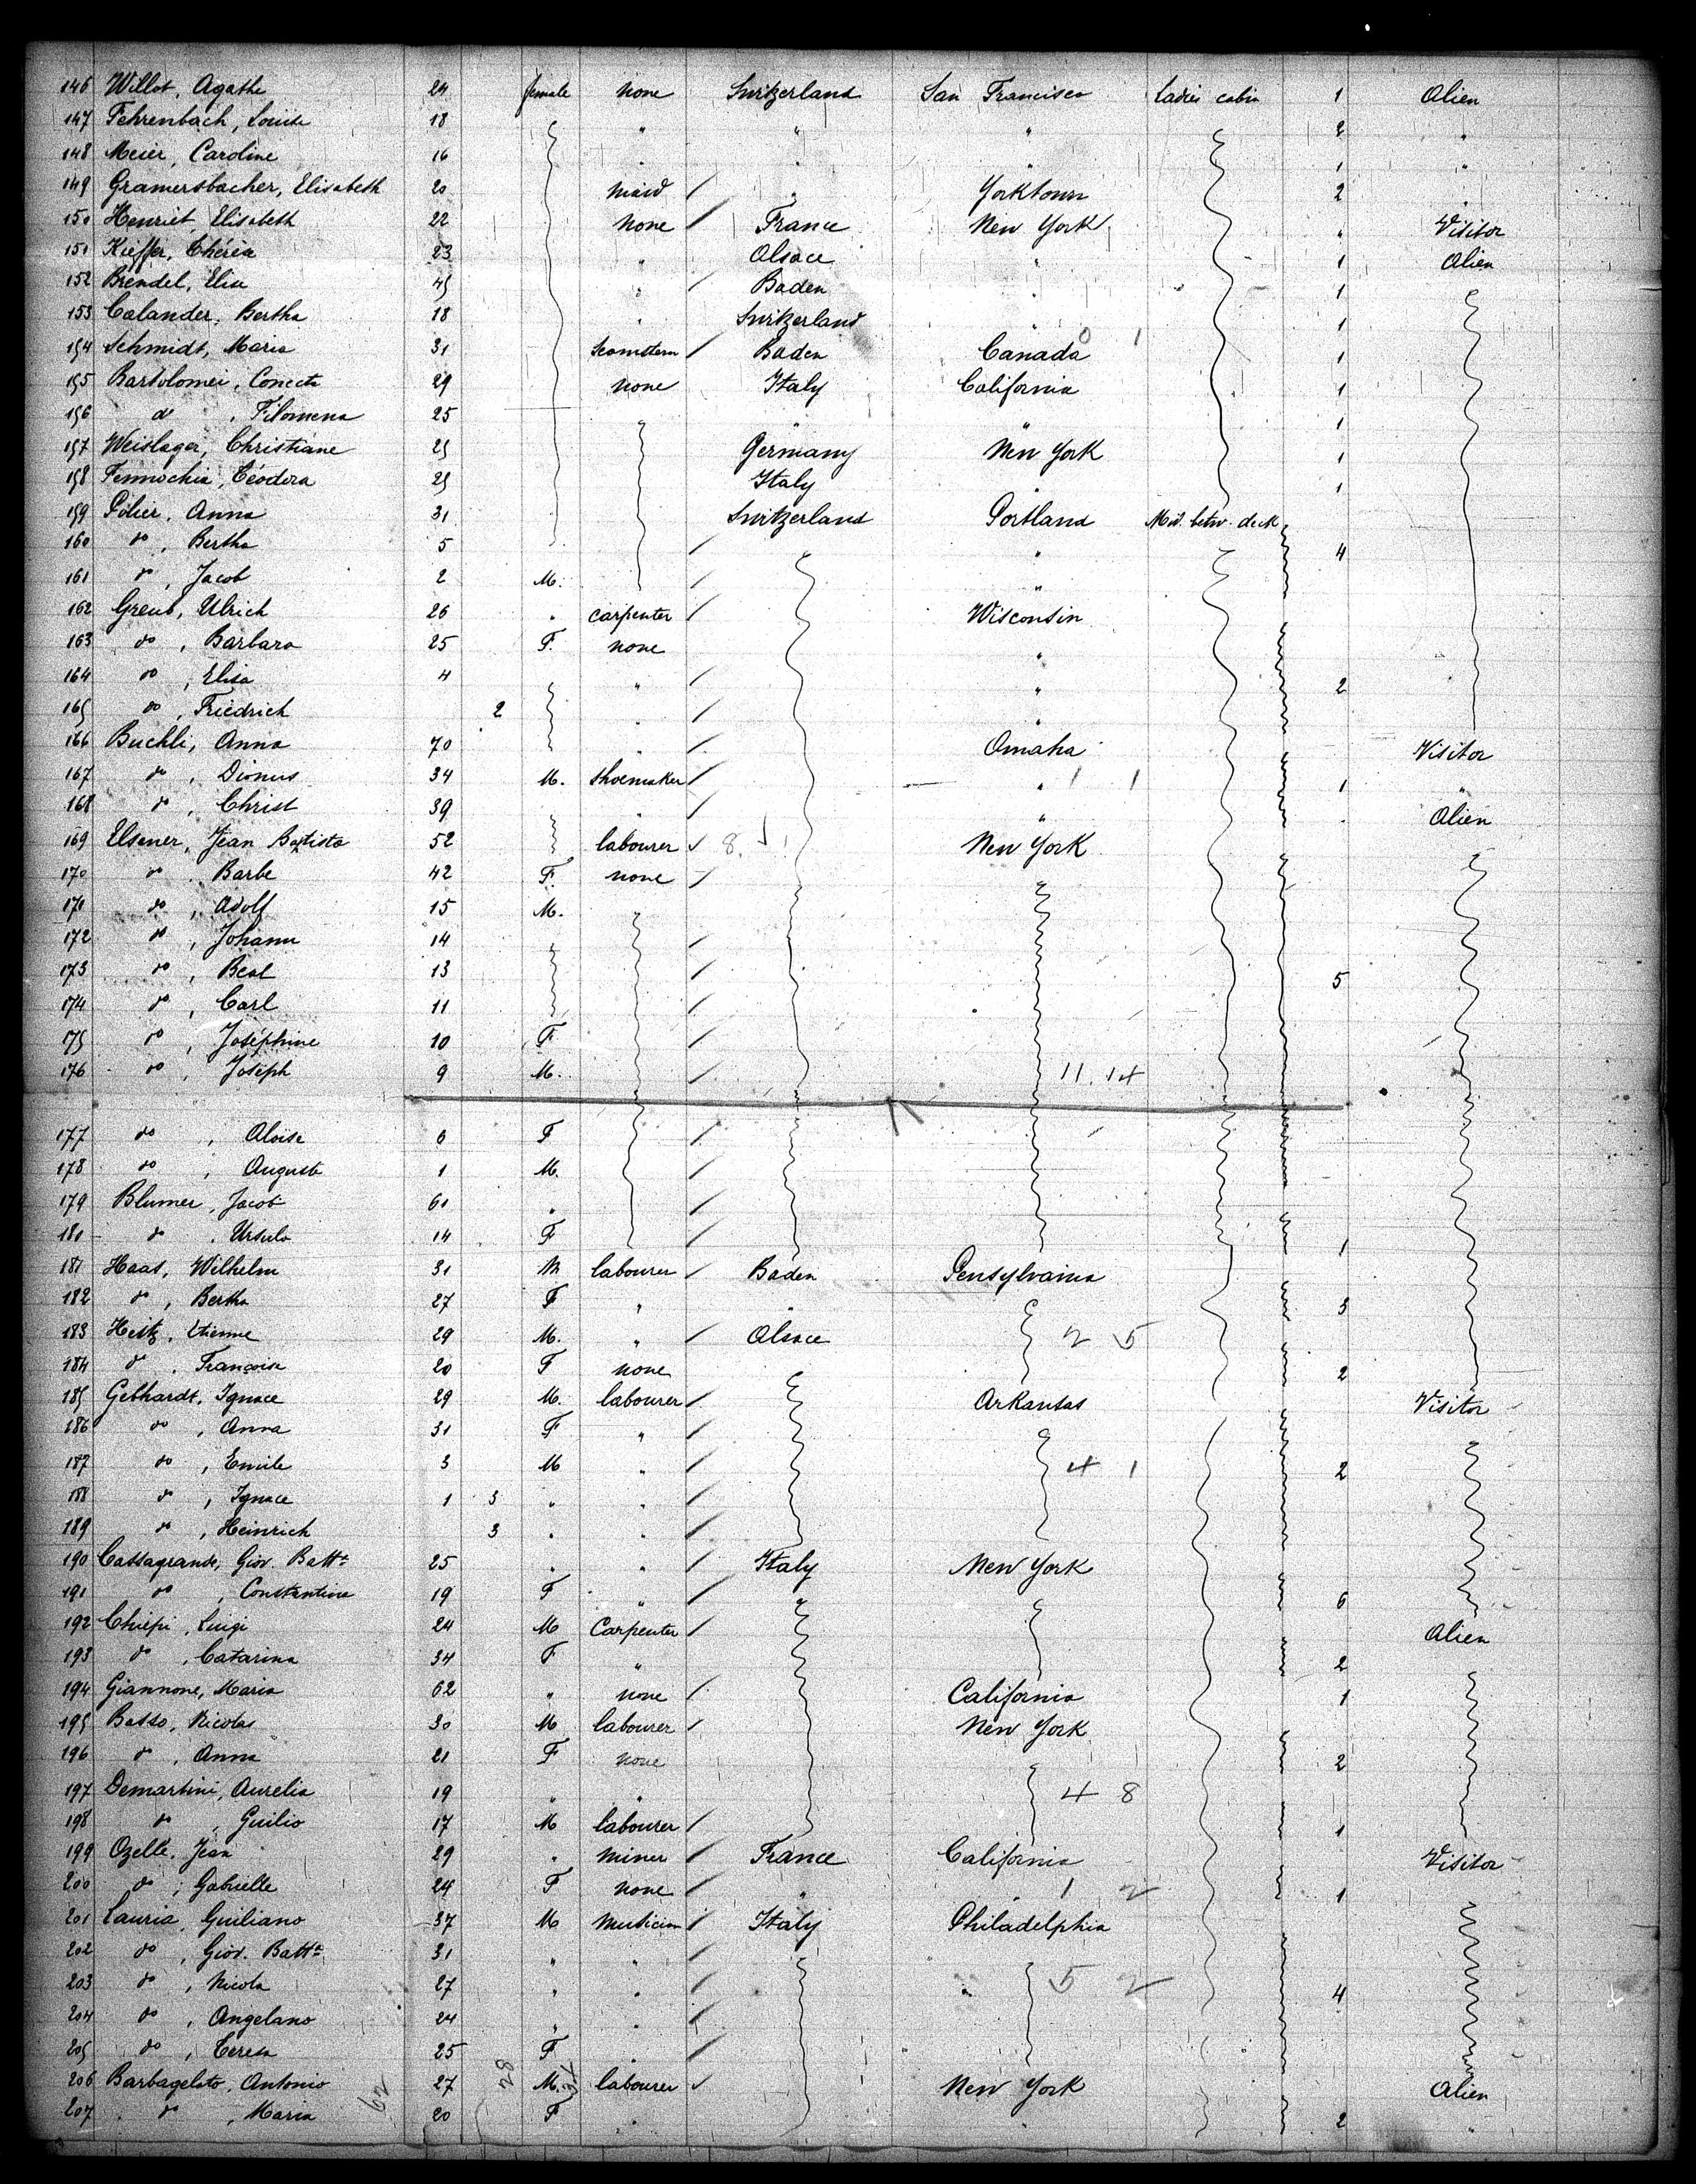 146 Willot, Agathe 24 female none Switzerland San Francisco Ladies cabin 1 Alien
147 Fehrenbach, Louise 18 " " " 2 "
148 Meier, Caroline 16 " " " 1 "
149 Gramersbacher, Elisabeth 20 maid / " Yorktown 2 "
150 Henriet, Elisabeth 22 none / France New York " Visitor
151 Kieffer, Thérèse 23 " Alsace " 1 Alien
152 Brendel, Elise 45 " / Baden " 1
153 Calander, Bertha 18 " Switzerland " 1
154 Schmidt, Maria 31 / Baden Canada 0 1 1
155 Bartolomei, 29 none Italy California 1
156 do, Filomena 25 " " 1
157 Weislager, Christiane 25 Germany New York 1
158 Fennochia, Téodora 25 Italy " 1
159 Pilier, Anna 31 Switzerland Portland Mid. betw. deck
160 do, Bertha 5 / " 4
161 do, Jacob 2 M. / "
162 Greub, Ulrich 26 " carpenter / Wisconsin
163 do, Barbara 25 F. none "
164 do, Elisa 4 " / " 2
165 do, Friedrich 2 " / "
166 Buchli, Anna 70 " / Omaha Visitor
167 do, Dionus 34 M. shoemaker / " 1 1 1 "
168 do, Christ 39 " / " Alien
169 Elsener, Jean Batista 52 labourer 8. New York
170 do, Barbe 42 F. none /
171 do, Adolf 15 M. "
172 do, Johann 14 /
173 do, Beat 13 / 5
174 do, Carl 11 /
175 do, Joséphine 10 F /
176 do, Joseph 9 M. / 11. 14
177 do, Aloise 6 F /
178 do, Auguste 1 M. /
179 Blumer, Jacob 61 " /
180 do, Ursula 14 F / 1
181 Haas, Wilhelm 31 M labourer / Baden Pensylvania
182 do, Bertha 27 F " " 3
183 Heitz, Etienne 29 M. " / Alsace 2 5
184 do, Françoise 20 F none 2
185 Gebhardt, Ignace 29 M. labourer / Arkansas Visitor
186 do, Anna 31 F " /
187 do, Emile 3 M " / 4 1 2
188 do, Ignace 1 3 " " /
189 do, Heinrich 3 " " /
190 Cassagrande, Giov. Batt 25 " " / Italy New York
191 do, Constantine 19 F " / 6
192 Chiepi, Luigi 24 M Carpenter / Alien
193 do, Catarina 34 F " 2
194 Giannone, Maria 62 " none / California 1
195 Basso, Nicolas 30 M labourer / New York
196 do, Anna 21 F none 2
197 Demartini, Aurelia 19 " " 4 8
198 do, Guilio 17 M labourer / 1
199 Ozelle, Jean 29 " miner / France California Visitor
200 do, Gabrielle 24 F none / " " 1 2 1
201 Lauria, Guiliano 37 M musician / Italy Philadelphia
202 do, Giov. Batt 31 " " /
203 do, Nicola 27 " " / " 5 2 4
204 do, Angelano 24 " " /
205 do, Teresa 25 F " /
206 Barbagelato, Antonio 27 M. labourer New York Alien
207 do, Maria 20 F " 2 "
62 28